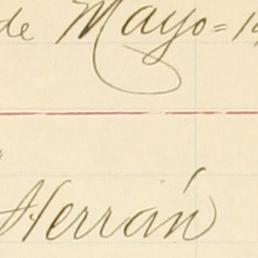 de Mayo = 19
Herrán